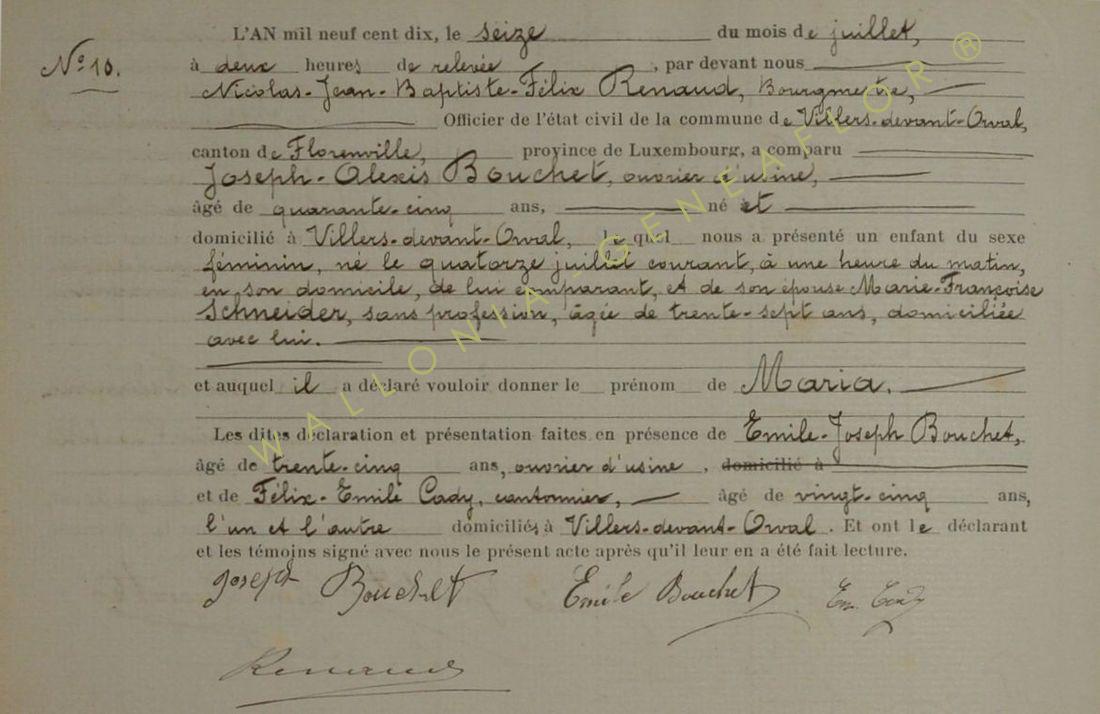 L'AN mil neuf cent dix, le seize du mois de juillet,
N° 10.
à deux heures de relevée, par devant nous
Nicolas-Jean-Baptiste-Félix Renaud, Bourgmestre,
Officier de l'état civil de la commune de Villers-devant-Orval,
canton de Florenville, province de Luxembourg, a comparu
Joseph-Alexis Bouchet, ouvrier d'usine,
âgé de quarante-cinq ans, né et
domicilié à Villers-devant-Orval, lequel nous a présenté un enfant du sexe
féminin, né le quatorze juillet courant, à une heure du matin,
en son domicile, de lui comparant, et de son épouse Marie-Françoise
Schneider, sans profession, âgée de trente-sept ans, domiciliée
avec lui.
et auquel il a déclaré vouloir donner le prénom de Maria.
Les dites déclaration et présentation faites en présence de Emile-Joseph Bouchet,
âgé de trente-cinq ans, ouvrier d'usine, domicilié à
et de Félix-Emile Cady, cantonnier, âgé de vingt-cinq ans,
l'un et l'autre domiciliés à Villers-devant-Orval. Et ont le déclarant
et les témoins signé avec nous le présent acte après qu'il leur en a été fait lecture.
Joseph Bouchet Emile Bouchet Em. Cady
Renaud
WALLONIA-GENEAFLOR ®